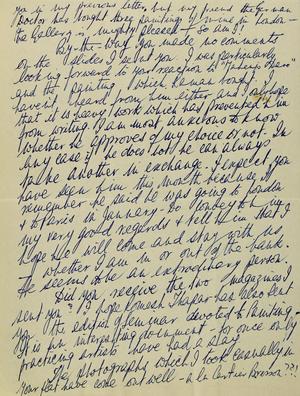 you in my previous letter, but my friend the German
Doctor has bought three paintings of mine in London -
the Gallery is mighty pleased - So am I!
By-the-Way you made no comments
on the slides I sent you. I was particularly
looking forward to your reaction of the
and the painting which he man bought. I
haven't heard from him either and only hope
that it is heavy work which has prevented him
from writing. I am most anxious to know
whether he approves of my choice or not - In
any case if he does not he can always
take another in exchange. I expect you
have seen him this month because I
remember he said he was going to London
& Paris in January - So convey to him
my very good regards & tell him that I
hope he will come and stay with us
- whether I am in or out of the
He seems to be an extraordinary person.
Did you receive the two magazines I
sent you? I hope Romesh Thapar has also sent
you the edition of Seminar devoted to Painting -
It is an interesting document - for once only
practicing artists have had a say.
The photographs which I took casually in
your flat have come out well - à la Cartier Bresson??!